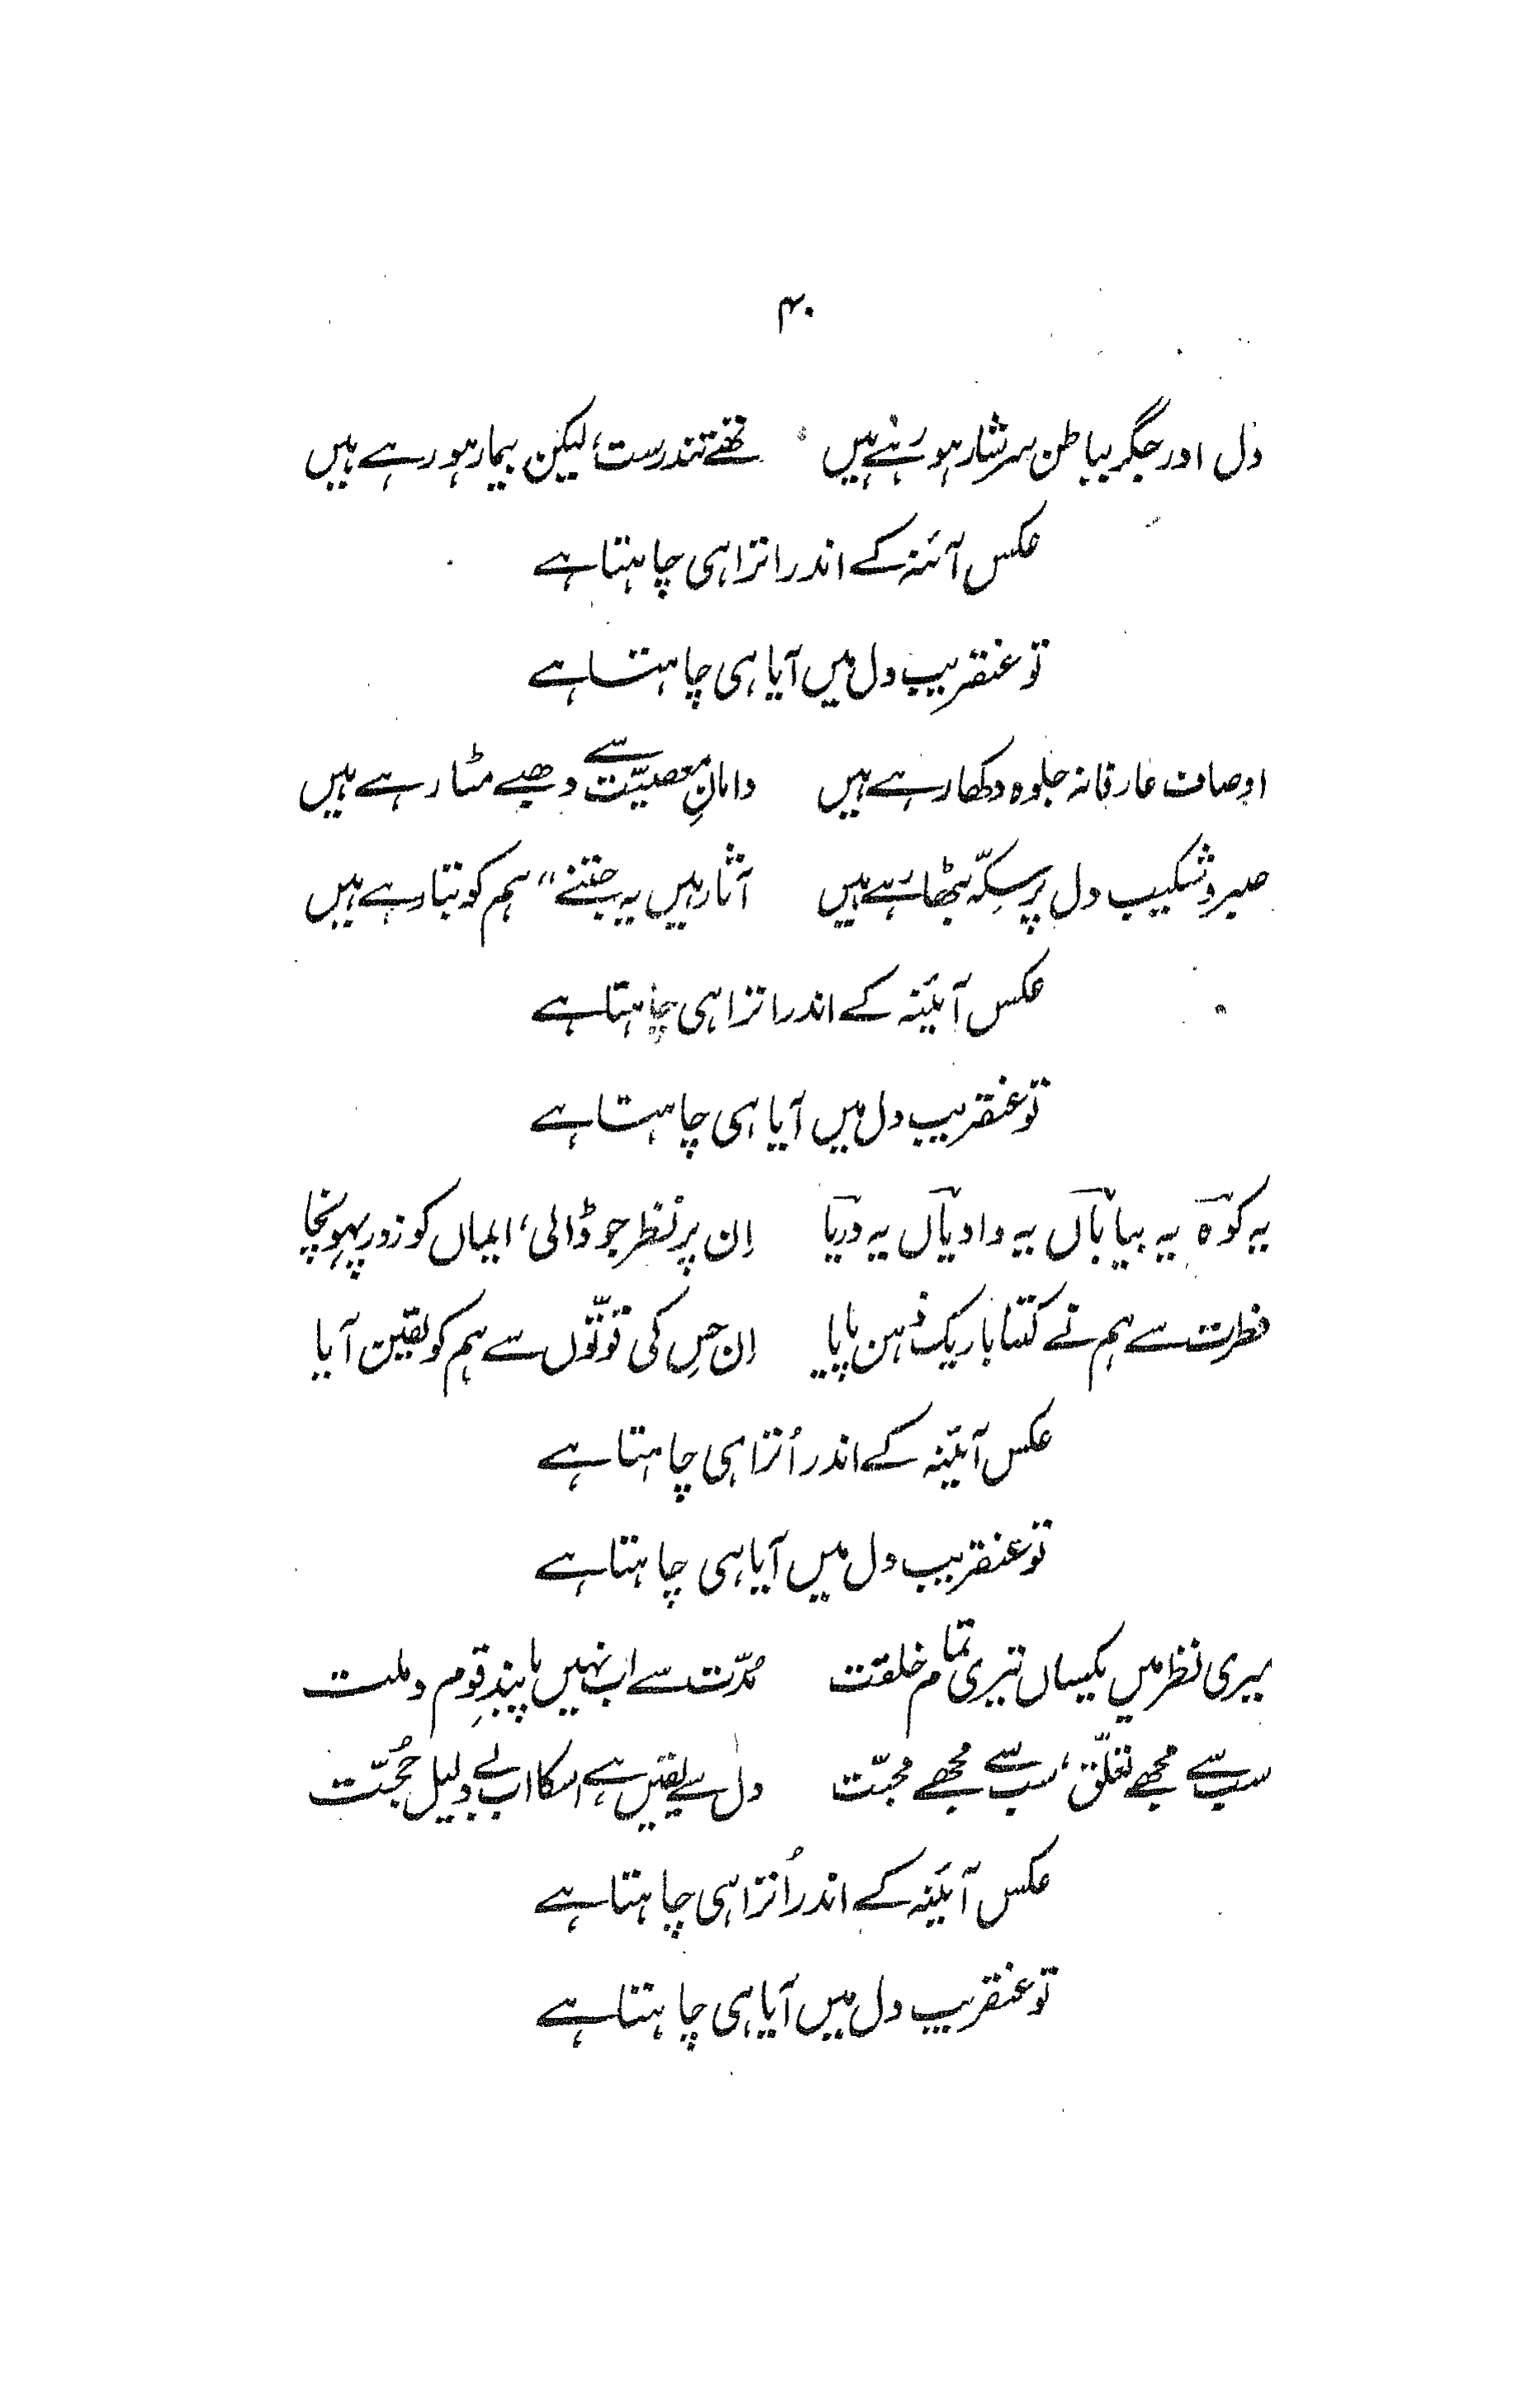 ۴۰
دل اور جگر بباطن سرشار ہو رہے ہیں تھے تندرست، لیکن بیمار ہو رہے ہیں
عکس آئنہ کے اندر اترا ہی چاہتا ہے
تو عنقریب دل میں آیا ہی چاہتا ہے
اوصاف عارفانہ جلوہ دکھا رہے ہیں دامانِ معصیّت سے دھبے مٹا رہے ہیں
صبر و شکیب دل پر سِکّہ بٹھا رہے ہیں آثار ہیں یہ جتنے " ہم کو بتا رہے ہیں
عکس آئینہ کے اندر اترا ہی چاہتا ہے
تو عنقریب دل میں آیا ہی چاہتا ہے
یہ کوہ یہ بیاباں یہ وادیاں یہ دریا اِن پر نظر جو ڈالی، ایماں کو زور پہونچا
فطرت سے ہم نے کتنا باریک ذہن پایا اِن حِس کی قوّتوں سے ہم کو یقین آیا
عکس آئینہ کے اندر اُترا ہی چاہتا ہے
تو عنقریب دل میں آیا ہی چاہتا ہے
میری نظر میں یکساں تیری تمام خلقت مُدّت سے اب نہیں پابندِ قوم و ملت
سب سے مجھے تعلّق، سب سے مجھے محبّت دل سے یقیں ہے اسکا اب بے دلیل حُجّت
عکس آئینہ کے اندر اُترا ہی چاہتا ہے
تو عنقریب دل میں آیا ہی چاہتا ہے